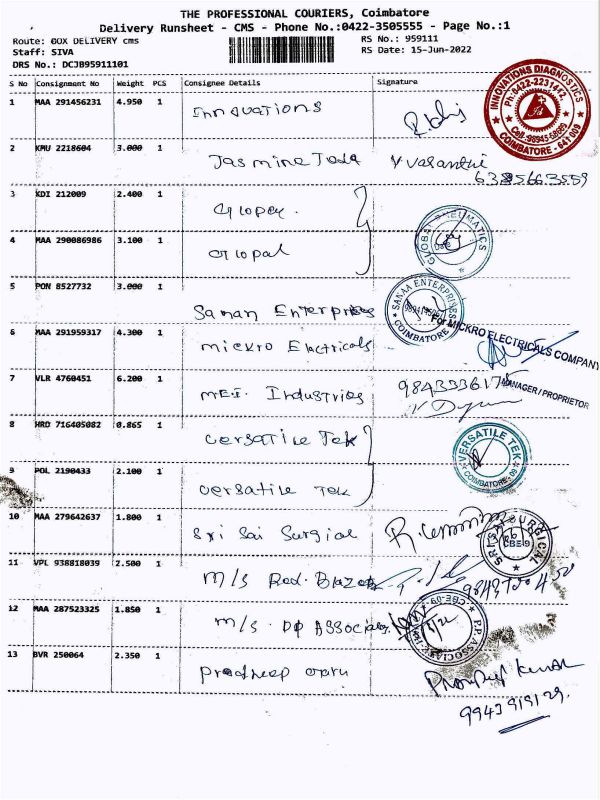 THE PROFESSIONAL COURIERS, Coimbatore
Delivery Runsheet - CMS - Phone No.:0422-3505555 - Page No.:1
Route: OOX DELIVERY cms
RS No.: 959111
Staff: SIVA
RS Date: 15-Jun-2022
DRS No.: DCJB95911101
S No Consignment No Weight PCS Consignee Details Signature
1 MAA 291456231 4.950 1 Innovations
INNOVATIONS DIAGNOSTICS
Ph:0422-2231412
COIMBATORE - 641 009
2 KMU 2218604 3.000 1 Jasmine Toda V Vasanthi
3 KDI 212009 2.400 1
4 MAA 290086986 3.100 1 Gopal
GLOBAL PNEUMATICS
5 PON 8527732 3.000 1 Sanan Enterprises
SANAA ENTERPRISES
COIMBATORE
6 MAA 291959317 4.300 1 Mickro Electricals
For MICKRO ELECTRICALS COMPANY
MANAGER/PROPRIETOR
7 VLR 4760451 6.200 1 MEI Industries
8 HRD 716405082 0.865 1 Versatile Tek
9 POL 2190433 2.100 1 Versatile Tek
VERSATILE TEK
COIMBATORE - 09
10 MAA 279642637 1.800 1 Sri Sai Surgial
SRI SAI SURGICAL
CBE-9
11 VPL 938818039 2.500 1 M/s Red
12 MAA 287523325 1.850 1 M/s. PP Associates
P.P. ASSOCIATES
CBE-09
13 BVR 250064 2.350 1 Pradheep
9943919129.